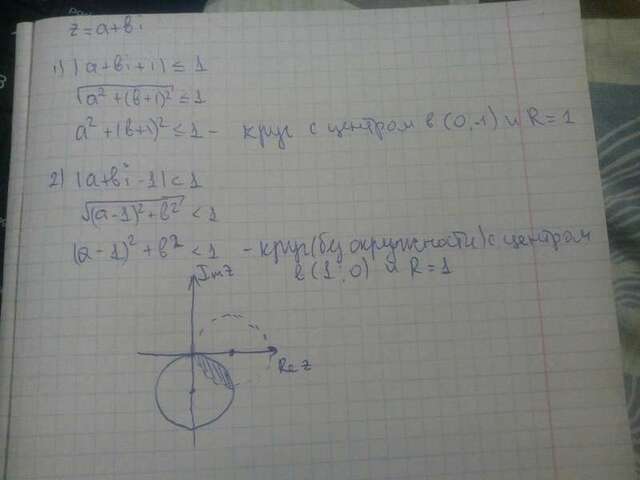 z = a + вi
1) |a + вi + i| ≤ 1
√(a² + (в+1)²) ≤ 1
a² + (в+1)² ≤ 1 - круг с центром в (0, -1) и R = 1
2) |a + вi - 1| < 1
√((a-1)² + в²) < 1
(a-1)² + в² < 1 - круг (без окружности) с центром
в (1; 0) и R = 1
Im z
Re z